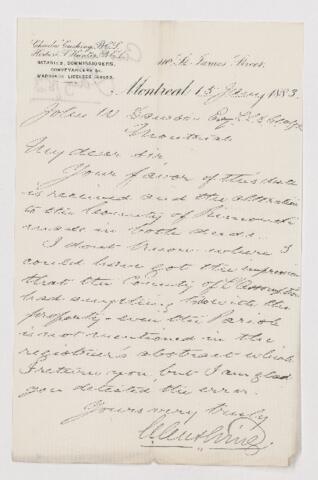 Charles Cushing, B.C.L.
Herbert S. Hunter,
NOTARIES, COMMISSIONERS,
CONVEYANCERS &c.
MARRIAGE LICENSE ISSUERS.
110 St. James Street,
Montreal 15 Jany 1883
John W Dawson Esq
Montreal
My dear Sir
Your favor of this date
is received and the alteration
to the County of Rimouski
made in both deeds.
I dont know where I
could have got the impression
that the County of L'Assomption
had anything to do with the
property - even the Parish
is not mentioned in the
registrars abstract which
I return you but I am glad
you detected the error.
Yours very truly
C Cushing